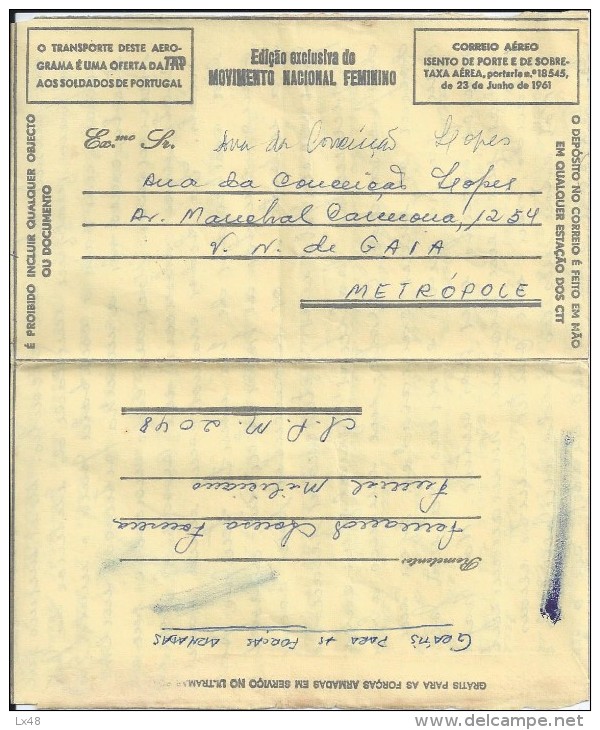 O TRANSPORTE DESTE AERO-
GRAMA É UMA OFERTA DA TAP
AOS SOLDADOS DE PORTUGAL
Edição exclusiva do
MOVIMENTO NACIONAL FEMININO
CORREIO AÉREO
ISENTO DE PORTE E DE SOBRE-
TAXA AÉREA, portaria n.º 18545,
de 23 de Junho de 1961
É PROIBIDO INCLUIR QUALQUER OBJECTO
OU DOCUMENTO
Ex.mo Sr. Ana da Conceição Lopes
Ana da Conceição Lopes
Av. Marechal Carmona, 1254
V. N. de GAIA
METRÓPOLE
O DEPÓSITO NO CORREIO É FEITO EM MÃO
EM QUALQUER ESTAÇÃO DOS CTT
GRÁTIS PARA AS FORÇAS ARMADAS EM SERVIÇO NO ULTRAMAR
GRÁTIS PARA AS FORÇAS ARMADAS
Remetente:
Fernando Sousa
Furriel Miliciano
S. P. M. 2048
Lx48
www.delcampe.net